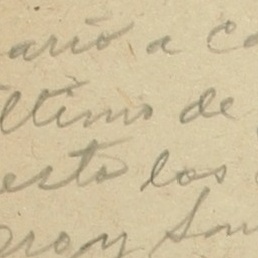 ario a ca
último de
esto los
oro y San